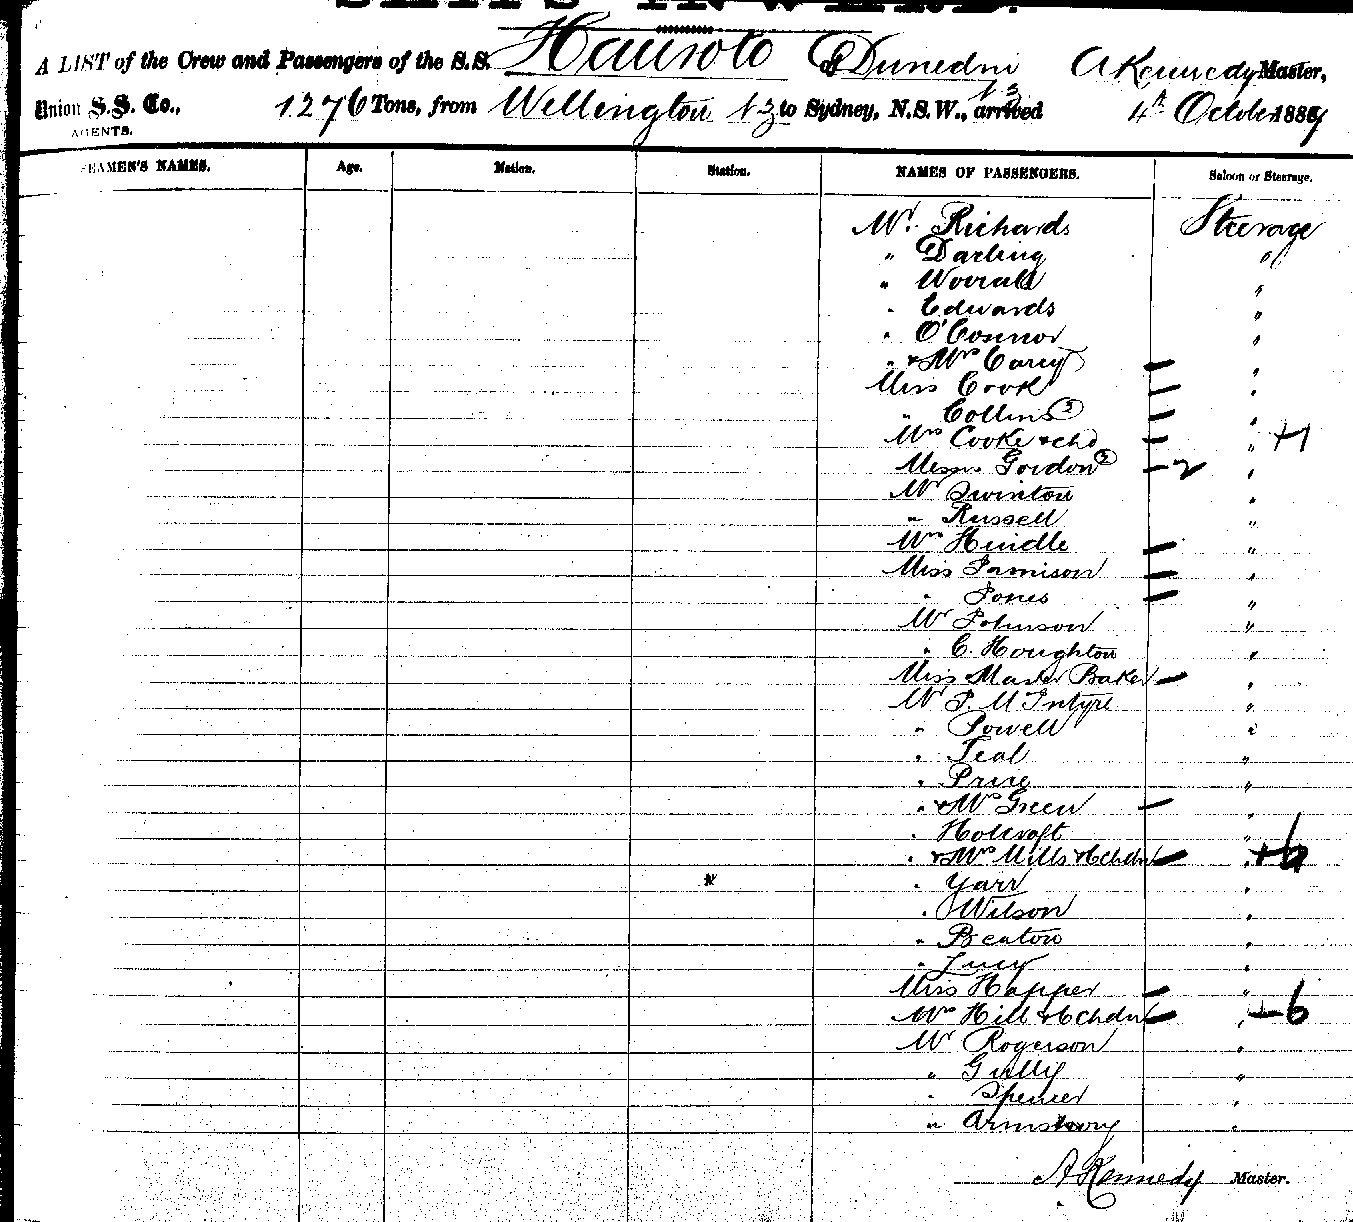 SHIPS INWARD.
A LIST of the Crew and Passengers of the S.S. Hauroto of Dunedin A Kennedy Master,
Union S.S. Co., 1276 Tons, from Wellington NZ to Sydney, N.S.W., arrived 4th October 1887
AGENTS.
SEAMEN'S NAMES. Age. Nation. Station. NAMES OF PASSENGERS. Saloon or Steerage.
Mr. Richards Steerage
" Darling "
" Worrall "
" Edwards "
" O'Connor "
" & Mrs Carey "
Miss Cook "
" Collins "
Mrs Cooke & chd " +1
Misses Gordon - 2 "
Mr Swinton "
" Russell "
Mrs Hindle "
Miss Jamison "
" Jones "
Mr Johnson "
" C. Houghton "
Miss Master Baker "
Mr J. McIntyre "
" Powell "
" Teal "
" "
" & Mrs Green "
" Holcroft "
" & Mrs Mills & 6 chdn " +6
" Yarr "
" Wilson "
" Beaton "
" Lucy "
Miss Happer "
Mrs Hill & 6 chdn " +6
Mr Rogerson "
" Gully "
" Spencer "
" Armstrong "
A Kennedy Master.